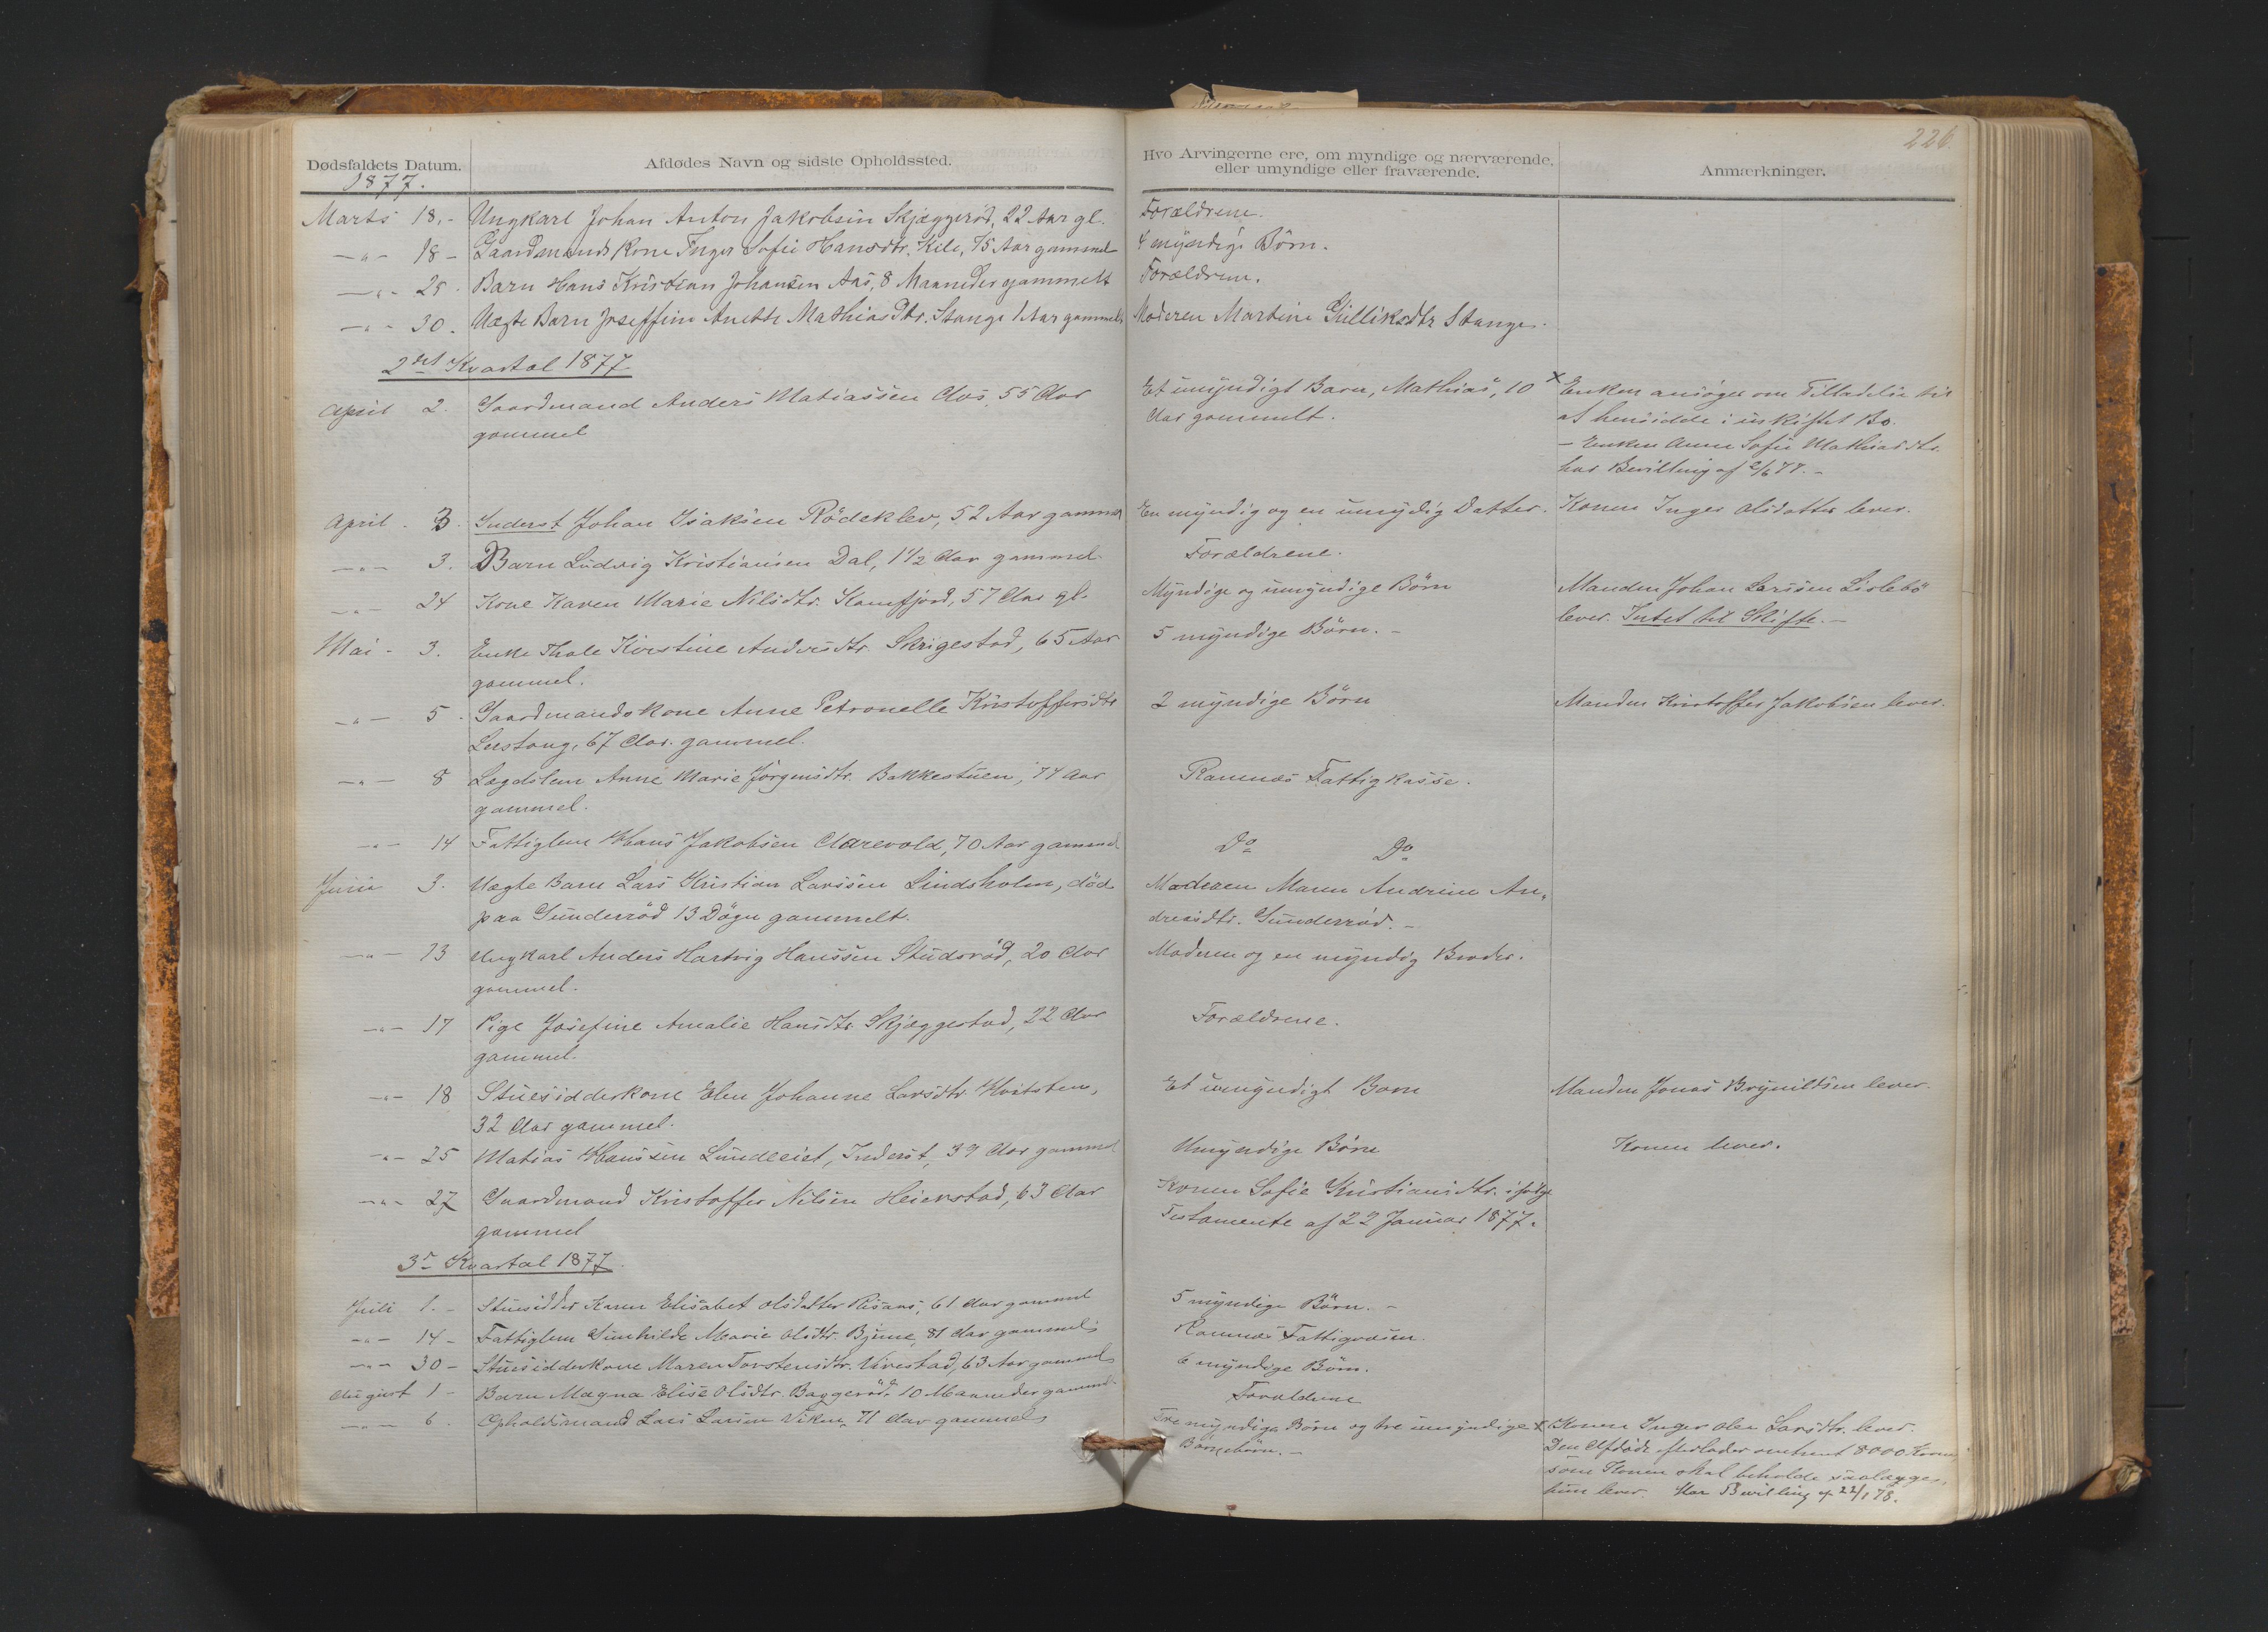 226.
Dødsfaldets Datum. Afdødes Navn og sidste Opholdssted. Hvo Arvingerne ere, om myndige og nærværende, eller umyndige eller fraværende. Anmærkninger.
1877.
Marts 18.- Ungkarl Johan Anton Jakobsen Skjæggerød, 22 Aar gl. Forældrene.
-"- 18 - Gaardmands Kone Inger Sofie Hansdtr. Kile, 75 Aar gammel 4 myndige Börn.
-"- 25. Barn Hans Kristian Johansen Aas, 8 Maaneder gammelt Forældrene.
-"- 30. Uægte Barn Joseffine Anette Mathiasdtr. Stange 1 Aar gammelt Moderen Martine Gulliksdtr Stange.
2det Kvartal 1877
April 2. Gaardmand Anders Matiassen Aas, 55 Aar Et umyndigt Barn, Mathias, 10 x Enken ansöger om Tilladelse til
gammel Aar gammelt. at hensidde i uskiftet Bo.
- Enken Anne Sofie Mathiasdtr.
har Bevilling af 2/6 77. -
April . 3. Inderst Johan Isaksen Rödeklev, 52 Aar gammel En myndig og en umydig Datter. Konen Inger Olsdatter lever.
-"- 3. Barn Ludvig Kristiansen Dal, 1 1/2 Aar gammel. Forældrene.
-"- 24 Kone Karen Marie Nilsdtr. Kamfjord, 57 Aar gl. Myndige og umyndige Börn Manden Johan Larssen Lislebö
lever. Intet til Skifte. -
Mai - 3. Enke Thale Kirstine Andersdtr. Skrigestad, 65 Aar 5 myndige Börn. -
gammel.
-"- 5. Gaardmandskone Anne Petronelle Kristoffersdtr 2 myndige Börn Manden Kristoffer Jakobsen lever.
Lerstang, 67 Aar. gammel.
-"- 8 Lægdslem Anne Marie Jörgensdtr. Bakkestuen, 74 Aar Ramnæs Fattigkasse.
gammel.
-"- 14 Fattiglem Hans Jakobsen Aarevold, 70 Aar gammel Do Do
Juni 3. Uægte Barn Lars Kristian Larssen Lindsholm, död Moderen Maren Andrine An-
paa Sunderröd 13 Dögn gammelt. dreasdtr. Sunderröd. -
-"- 13 Ungkarl Anders Hartvig Hanssen Studsröd, 20 Aar Moderen og en myndig Broder.
gammel.
-"- 17 Pige Josefine Amalie Hansdtr. Skjæggestad, 22 Aar Forældrene.
gammel.
-"- 18 Stuesidderkone Elen Johanne Larsdtr. Hvitsten, Et umyndigt Barn Manden Jonas Brynildsen lever.
32 Aar gammel.
-"- 25 Matias Hanssen Lundeeiet, Inderst, 39 Aar gammel Umyndige Börn Konen lever.
-"- 27 Gaardmand Kristoffer Nilsen Heierstad, 63 Aar Konen Sofie Kristiansdtr. ifölge
gammel Testamente af 22 Januar 1877.
3e Kvartal 1877.
Juli 1. - Stuesidder Karen Elisabet Olsdatter Risaas, 61 Aar gammel 5 myndige Börn. -
-"- 14 - Fattiglem Gunhilde Marie Olsdtr. Bjune, 81 Aar gammel Ramnæs Fattigvæsen.
-"- 30 - Stuesidderkone Maren Torstensdtr. Virestad, 63 Aar gammel 6 myndige Börn.
August 1 - Barn Magna Elise Olsdtr. Baggeröd, 10 Maaneder gammel Forældrene
-"- 6. Opholdsmand Lars Larsen Viken, 71 Aar gammel Tre myndige Börn og tre umyndige x Konen Inger Olea Larsdtr. lever.
Börnebörn. - Den Afdöde efterlader omtrent 8000 Kroner,
som Konen skal beholde saalænge
hun lever. Har Bevilling af 22/1 78.